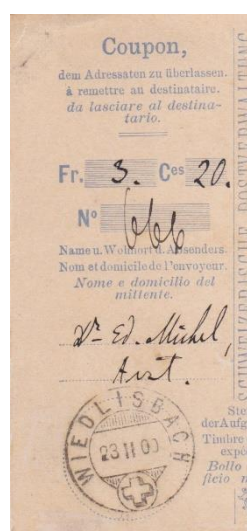 Coupon,
dem Adressaten zu überlassen.
à remettre au destinataire.
da lasciare al destina-
tario.
Fr. 3. Ces 20.
No 666
Name u. Wohnort d. Absenders.
Nom et domicile de l'envoyeur.
Nome e domicilio del
mittente.
Dr. Ed. Michel,
Arzt.
WIEDLISBACH
23 II 00
Ste
der Aufg
Timbre
expé
Bollo
ficio